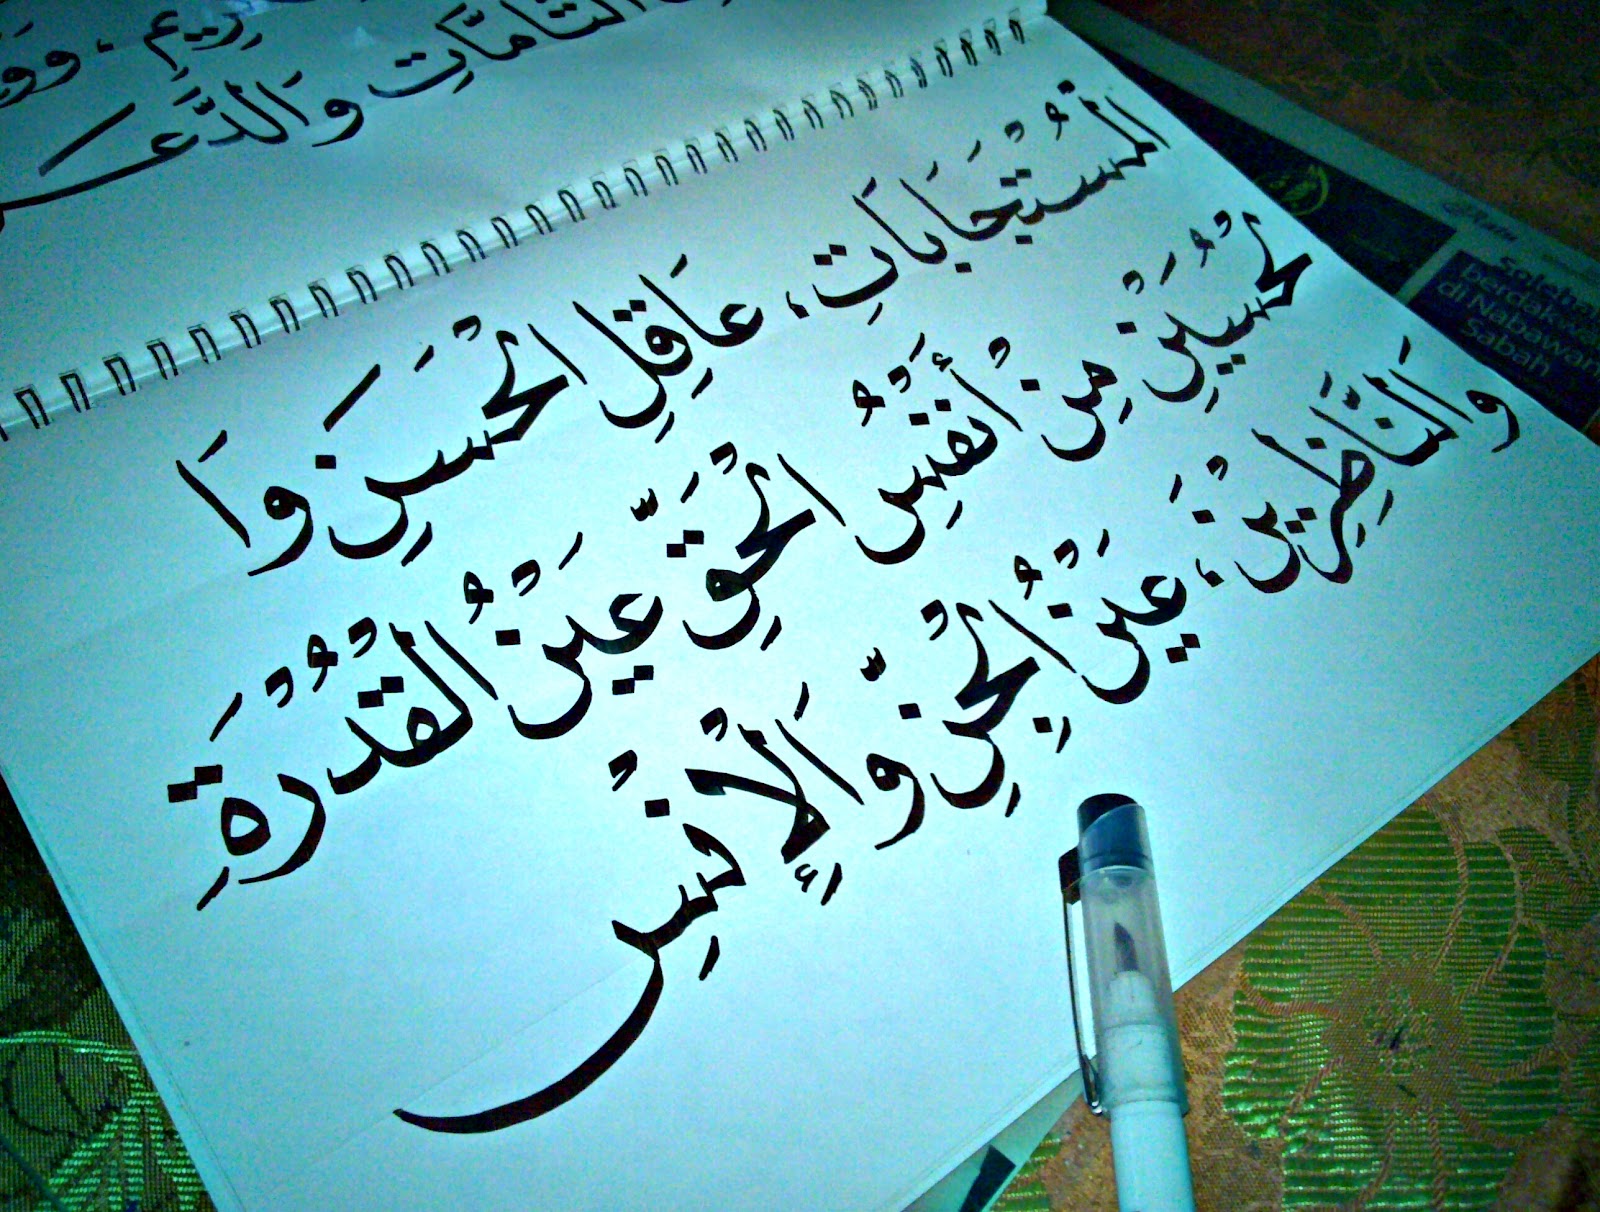 التَّامَّاتِ وَالدَّعَــ
الْمُسْتَجَابَاتِ، عَاقِلِ الْحَسَنِ وَا
لْحُسَيْنِ مِنْ أَنْفُسِ الْحَقِّ عَيْنُ الْقُدْرَةِ
وَالنَّاظِرِيْنَ، عَيْنُ الْجِنِّ وَالْإِنْسِ
berdakwah
di Nabawan
Sabah